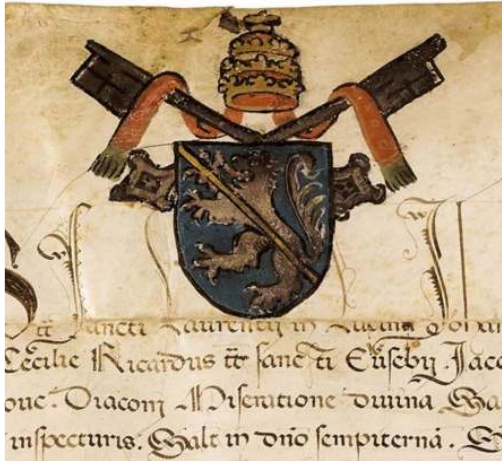 tt Sancti Laurentij in Lucina Johan
Cecilie Ricardus tt sancti Eusebij Jaco
oue. Diaconi Miseratione diuina Sa
inspecturis. Salt in dno sempiternã.